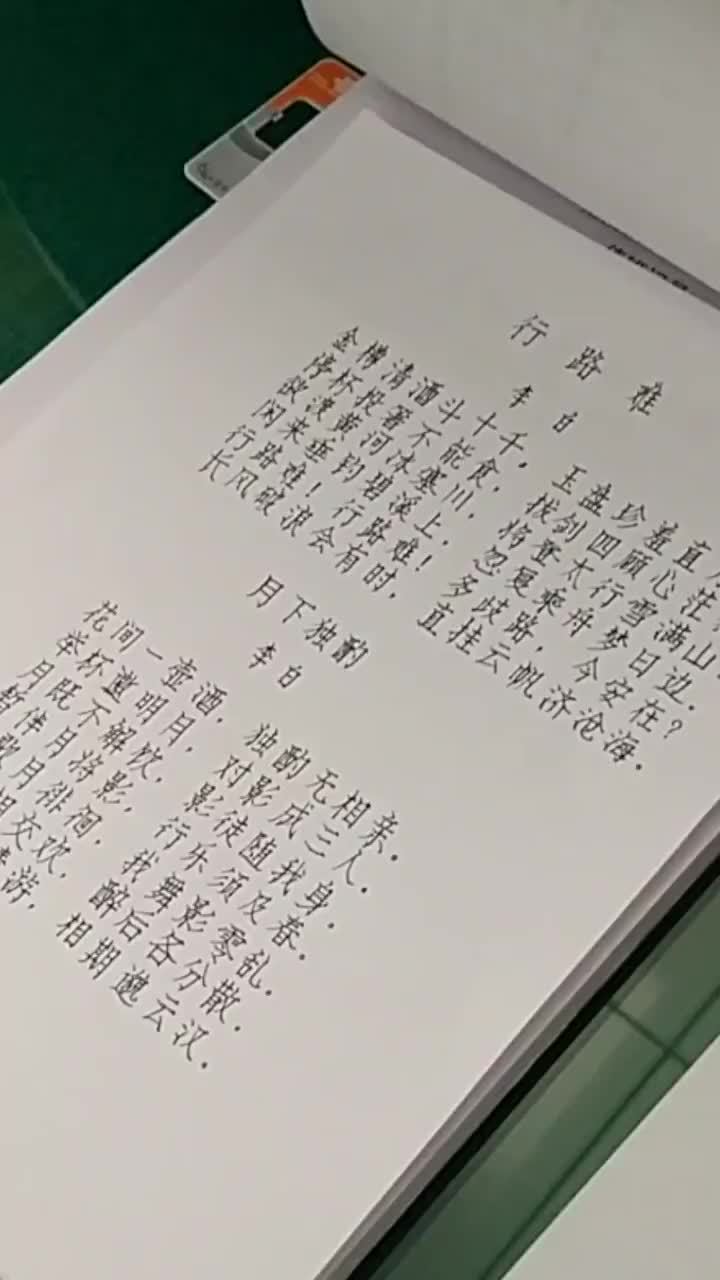 行路难
李白
金樽清酒斗十千，玉盘珍羞直
停杯投箸不能食，拔剑四顾心茫
欲渡黄河冰寒川，将登太行雪满山
闲来垂钓碧溪上，忽复乘舟梦日边。
行路难！行路难！多歧路，今安在？
长风破浪会有时，直挂云帆济沧海。
月下独酌
李白
花间一壶酒，独酌无相亲。
举杯邀明月，对影成三人。
月既不解饮，影徒随我身。
暂伴月将影，行乐须及春。
歌月徘徊，我舞影零乱。
交欢，醉后各分散。
游，相期邈云汉。